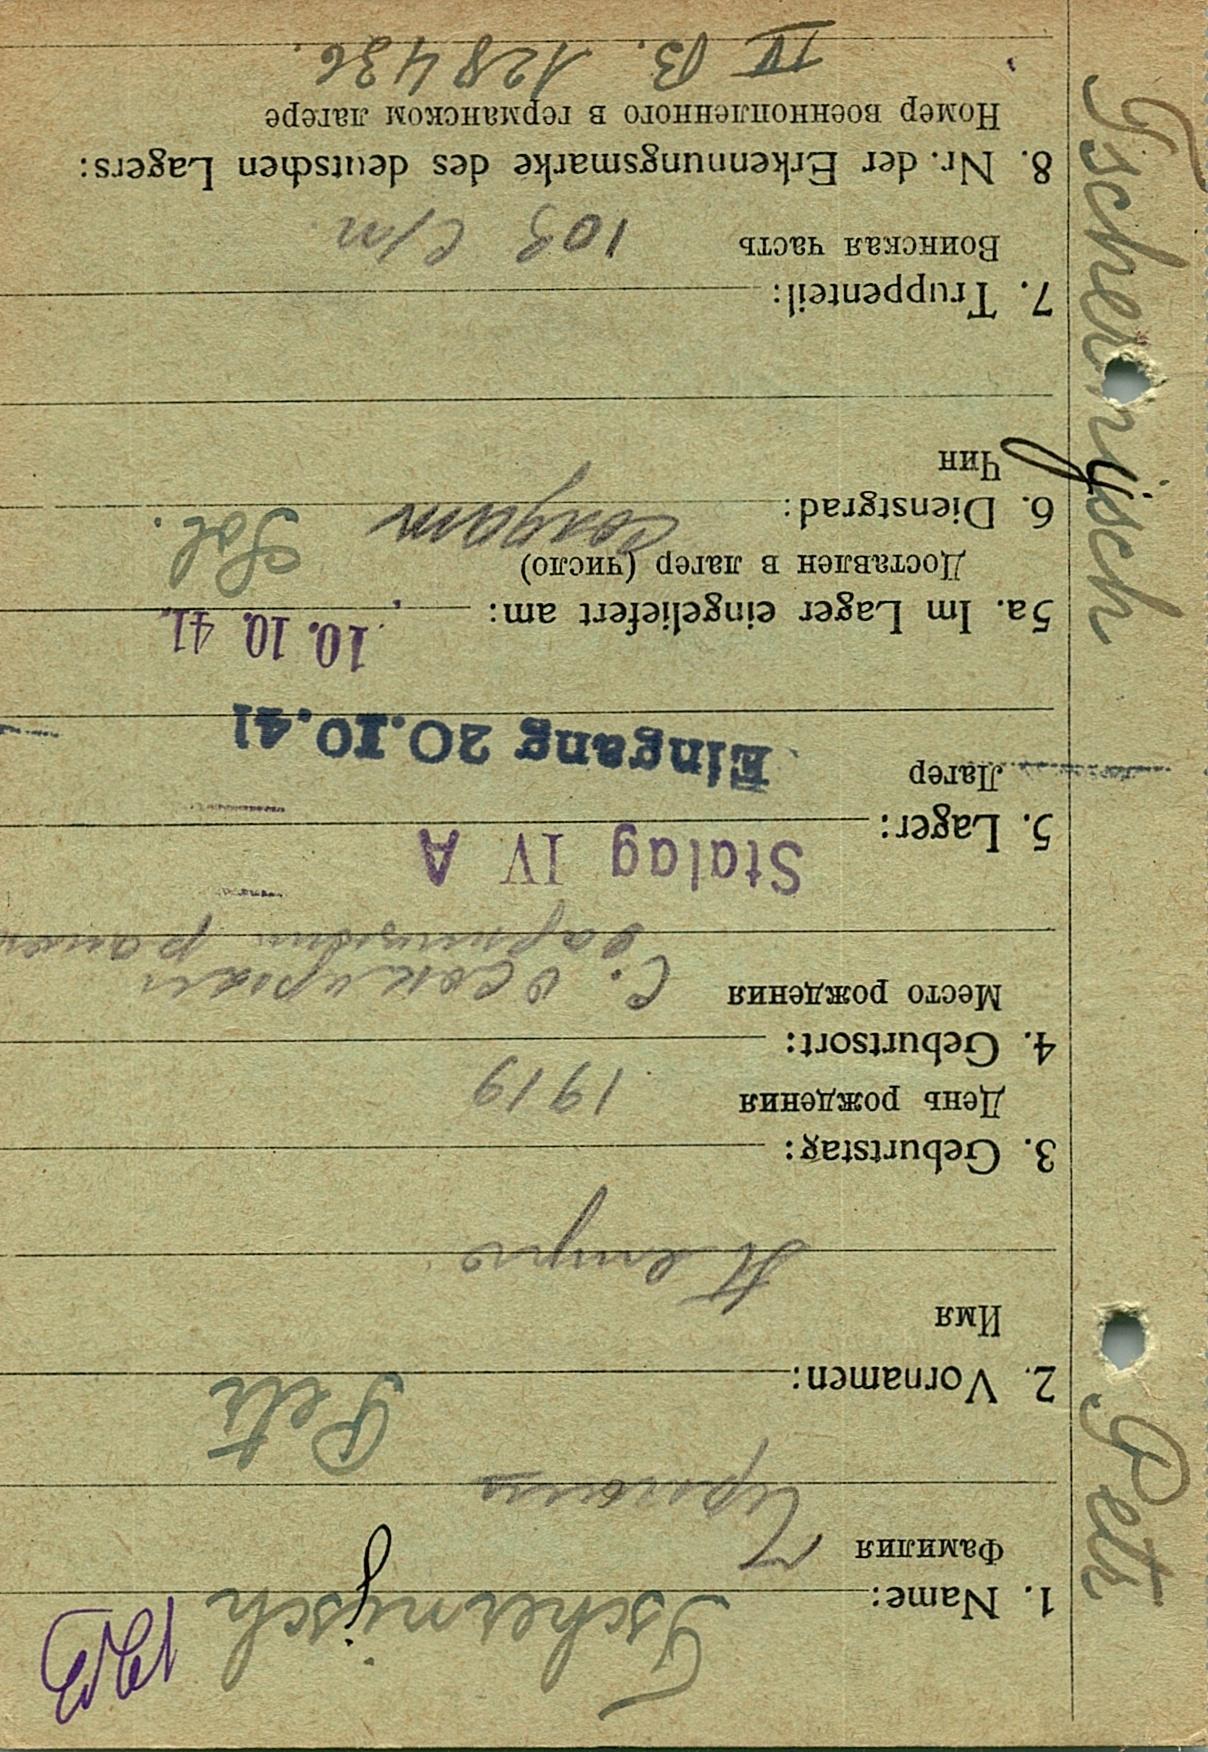 Tschernysch Petr
1. Name: Tschernysch
Фамилия
2. Vornamen: Petr
Имя
3. Geburtstag:
День рождения 1919
4. Geburtsort:
Место рождения с.
5. Lager: Stalag IV A
Лагер Eingang 20.10.41
5a. Im Lager eingeliefert am: 10. 10. 41.
Доставлен в лагер (число) Sol.
6. Dienstgrad: солдат
Чин
7. Truppenteil:
Воинская часть с/п
8. Nr. der Erkennungsmarke des deutschen Lagers:
Номер военнопленного в германском лагере
IV B. 128436.